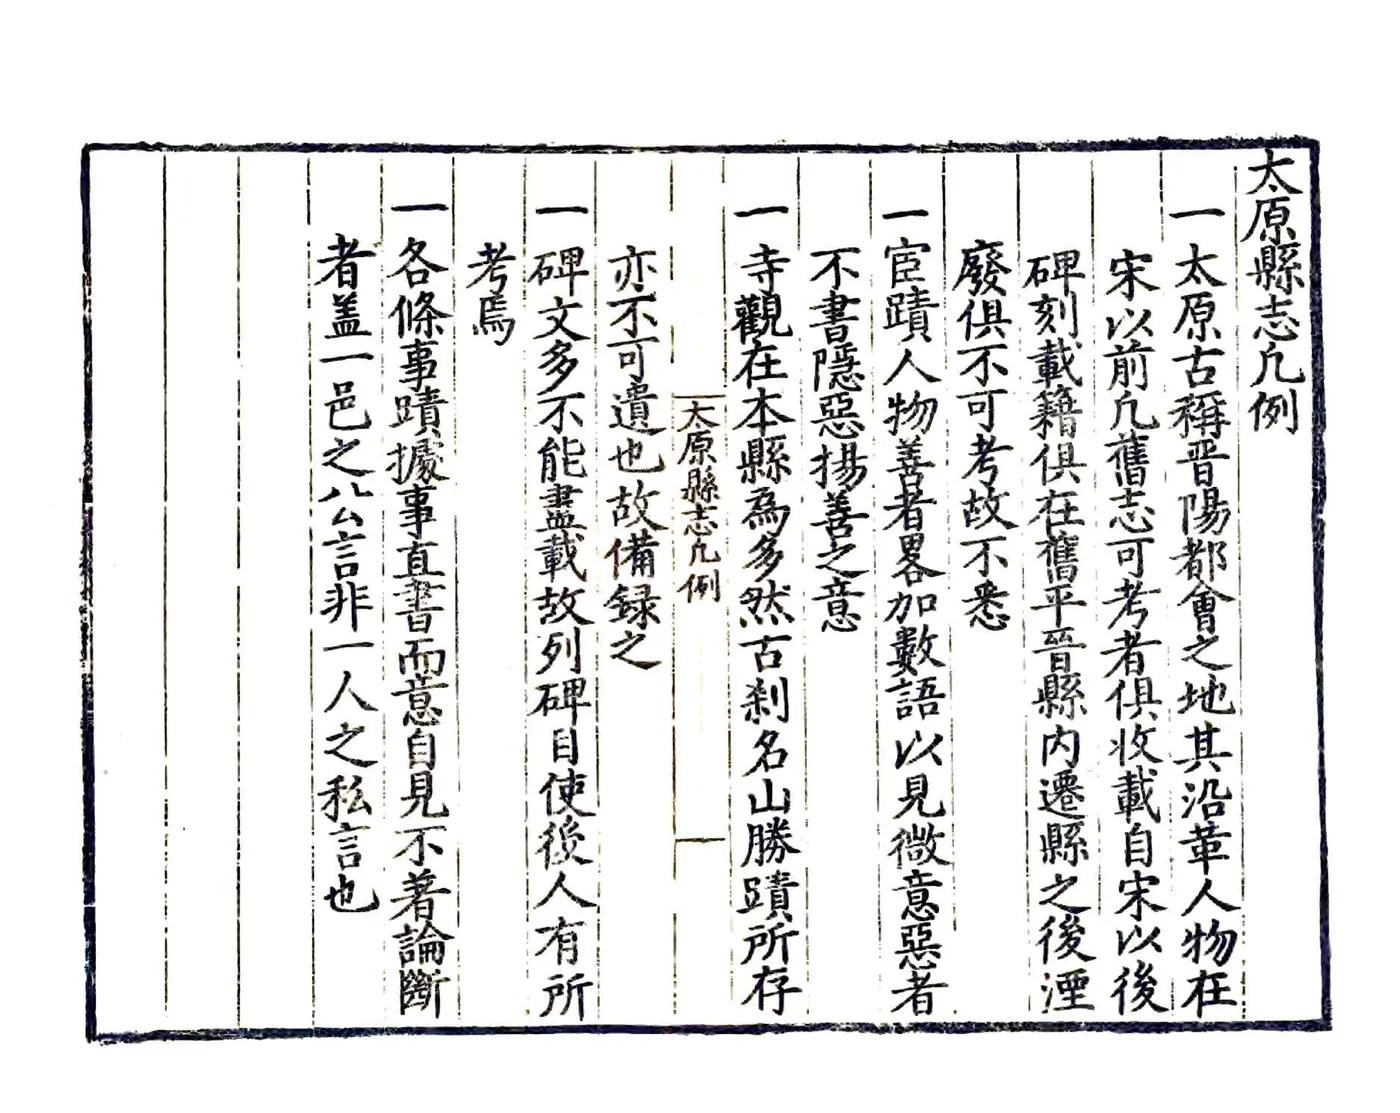 太原縣志凡例
一太原古稱晉陽都會之地其沿革人物在
宋以前凡舊志可考者俱收載自宋以後
碑刻載籍俱在舊平晉縣内遷縣之後湮
廢俱不可考故不悉
一宦蹟人物善者畧加數語以見微意惡者
不書隱惡揚善之意
一寺觀在本縣為多然古剎名山勝蹟所存
太原縣志凡例
亦不可遺也故備録之
一碑文多不能盡載故列碑目使後人有所
考焉
一各條事蹟據事直書而意自見不著論斷
者盖一邑之公言非一人之私言也